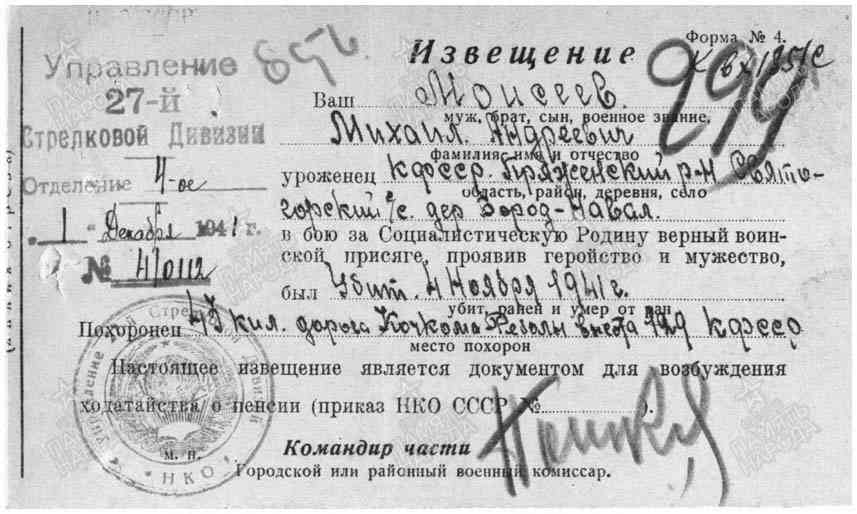 Управление
27-й
Стрелковой Дивизии
Отделение 4-ое
"1" Декабря 1941 г.
№ 4/0112
299
Форма № 4.
Извещение
Ваш Моисеев
муж, брат, сын, военное звание,
Михаил Андреевич
фамилия, имя и отчество
уроженец КФССР. Пряженский р-н Свято-
область, район, деревня, село
горский с/с. дер.
в бою за Социалистическую Родину верный воин-
ской присяге, проявив геройство и мужество,
был Убит. 4 Ноября 1941 г.
убит, ранен и умер от ран
Похоронен 43 кил. дорога Кочкома Реболы КФССР
место похорон
Настоящее извещение является документом для возбуждения
ходатайства о пенсии (приказ НКО СССР № ).
Командир части
м. п.
Городской или районный военный комиссар.
НКО